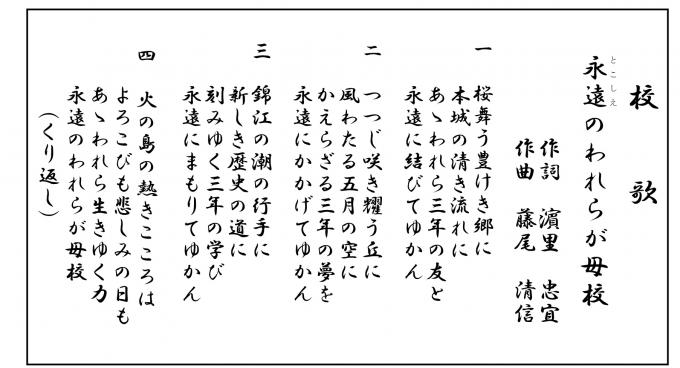 校歌
永遠のわれらが母校
とこしえ
作詞 濵里 忠宜
作曲 藤尾 清信
一 桜舞う豊けき郷に
本城の清き流れに
あゝわれら三年の友と
永遠に結びてゆかん
二 つつじ咲き耀う丘に
風わたる五月の空に
かえらざる三年の夢を
永遠にかかげてゆかん
三 錦江の潮の行手に
新しき歴史の道に
刻みゆく三年の学び
永遠にまもりてゆかん
四 火の島の熱きこころは
よろこびも悲しみの日も
あゝわれら生きゆく力
永遠のわれらが母校
（くり返し）